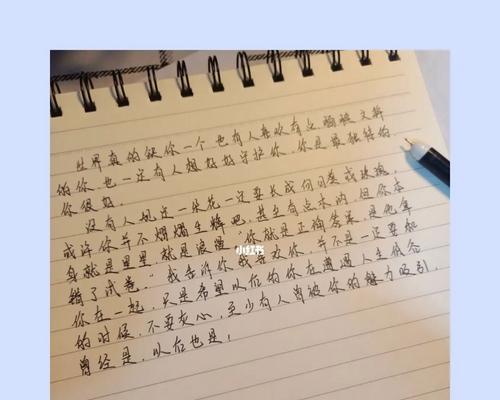 世界真的缺你一个 也有人喜欢有点
的你.也一定有人想好好守护你.你是最独特的.
你很好.
没有人规定一朵花一定要长成向日葵或玫瑰.
或许你并不熠熠生辉吧.甚至有点木讷.但你本
身就是星星.就是浪漫.你就是正确答案.是他拿
错了试卷."我告诉你我喜欢你,并不是一定要和
你在一起,只是希望以后的你在遭遇人生低谷
的时候,不要灰心,至少有人曾被你的魅力吸引.
曾经是,以后也是.
小红书